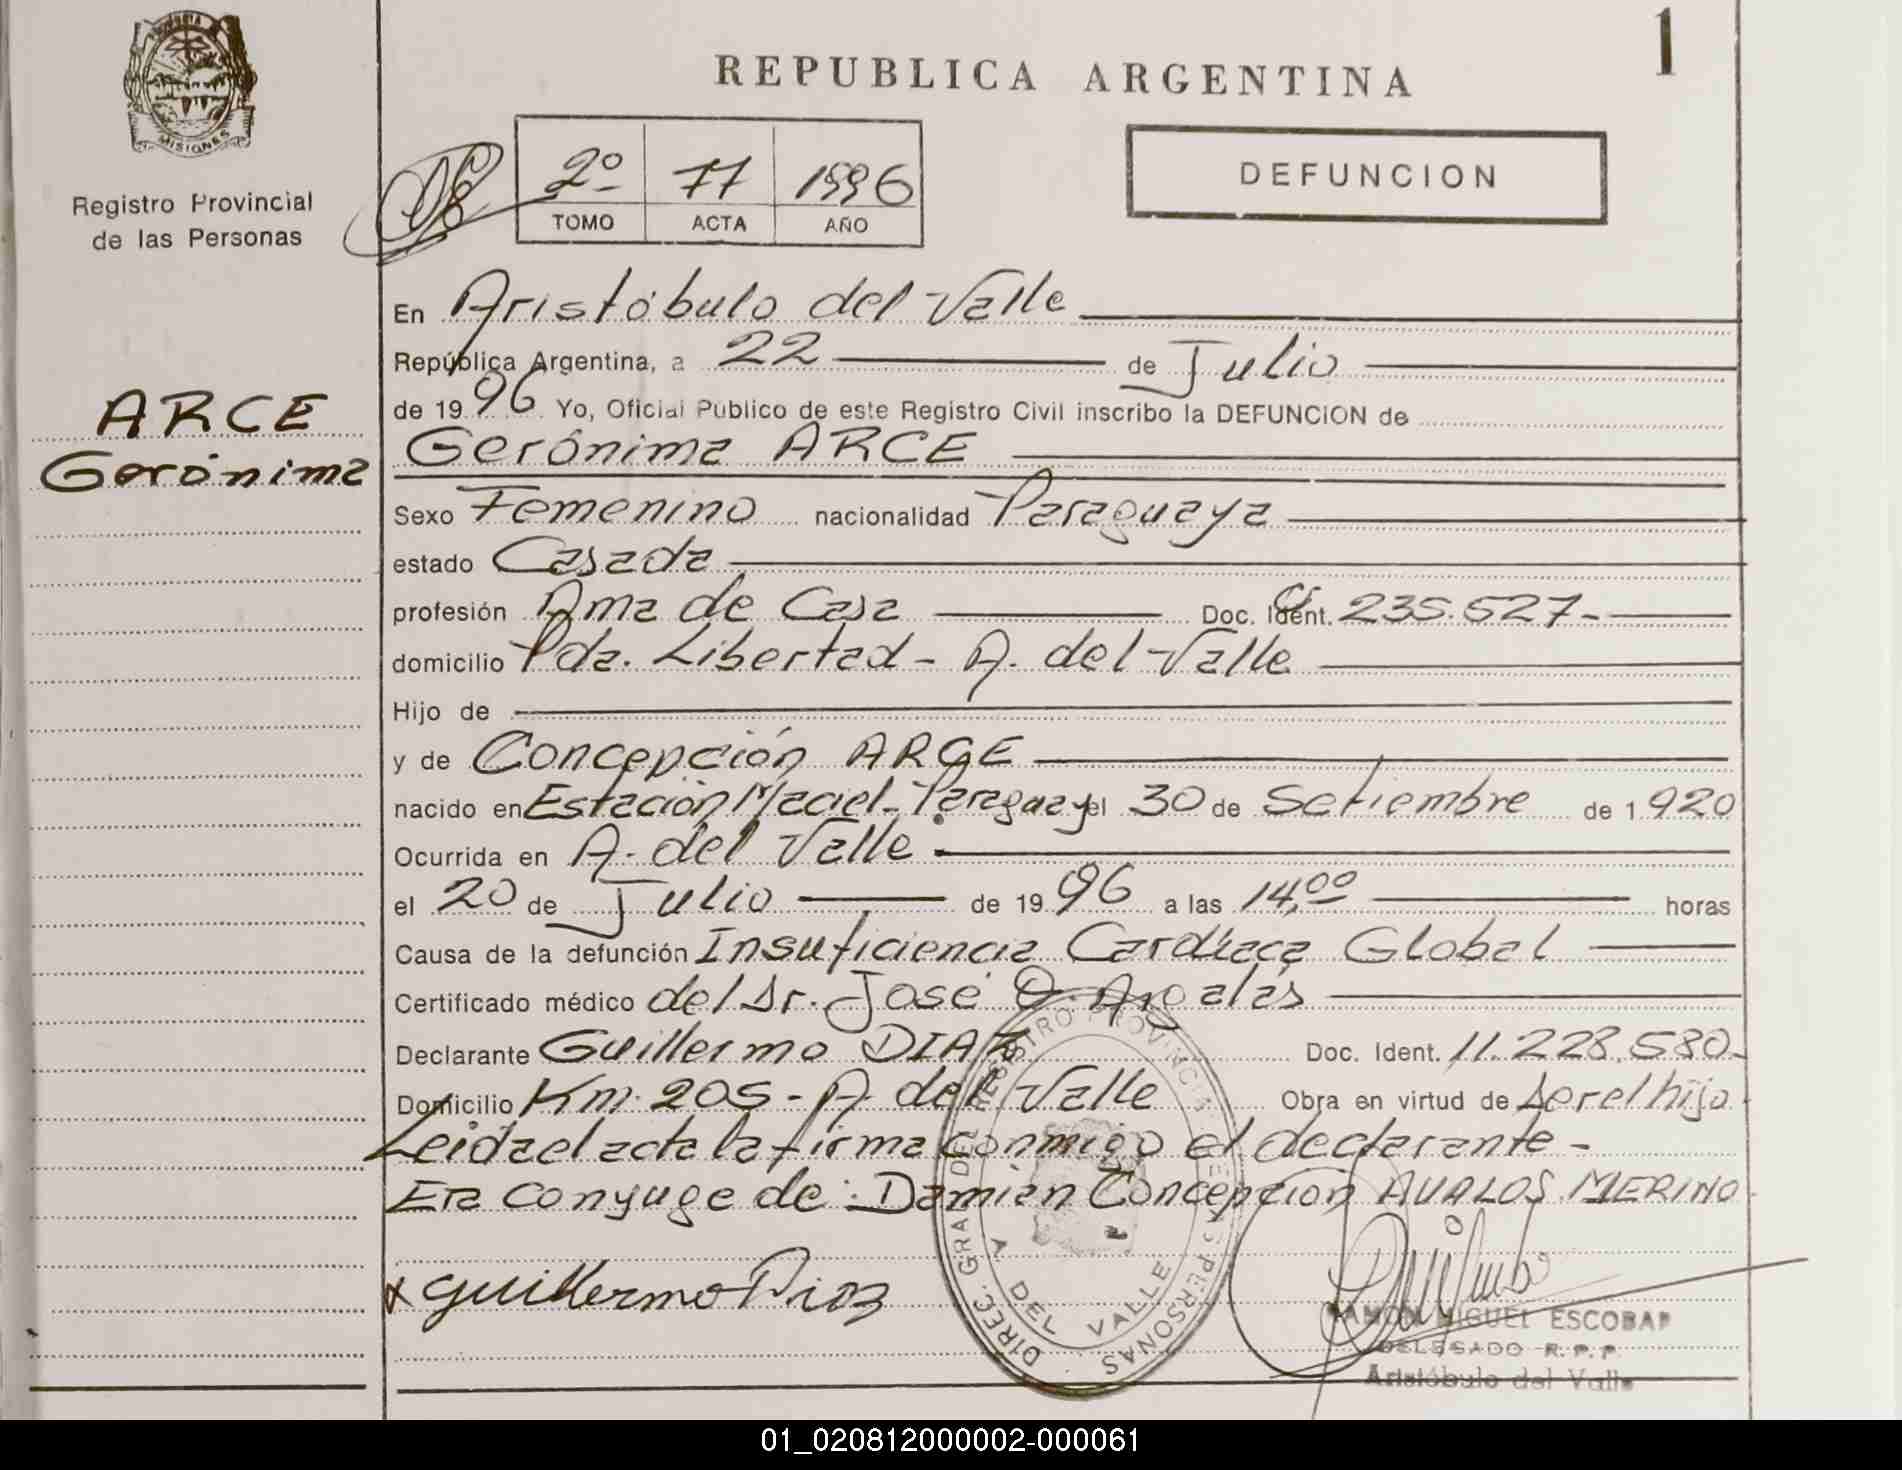 MISIONES
Registro Provincial
de las Personas
ARCE
Gerónima
1
REPUBLICA ARGENTINA
2º 77 1996
TOMO ACTA AÑO
DEFUNCION
En Aristóbulo del Valle
República Argentina, a 22 de Julio
de 1996 Yo, Oficial Público de este Registro Civil inscribo la DEFUNCION de
Gerónima ARCE
Sexo Femenino nacionalidad Paraguaya
estado Casada
profesión Ama de Casa Doc. Ident. CI 235.527-
domicilio Pda. Libertad - A. del Valle
Hijo de
y de Concepción ARCE
nacido en Estación Maciel - Paraguay el 30 de Setiembre de 1920
Ocurrida en A. del Valle
el 20 de Julio de 1996 a las 14,00 horas
Causa de la defunción Insuficiencia Cardiaca Global
Certificado médico del Dr. José O.
Declarante Guillermo DIAZ Doc. Ident. 11.228.580-
Domicilio Km. 205 - A. del Valle Obra en virtud de ser el hijo
Leida el acta la firma conmigo el declarante -
Era conyuge de: Damián Concepción AVALOS MERINO
x guillermo Diaz
DIREC. GRAL DEL REGISTRO PROVINCIAL DE LAS PERSONAS
A DEL VALLE
RAMON MIGUEL ESCOBAR
DELEGADO R. P. P.
Aristóbulo del Valle
01_020812000002-000061